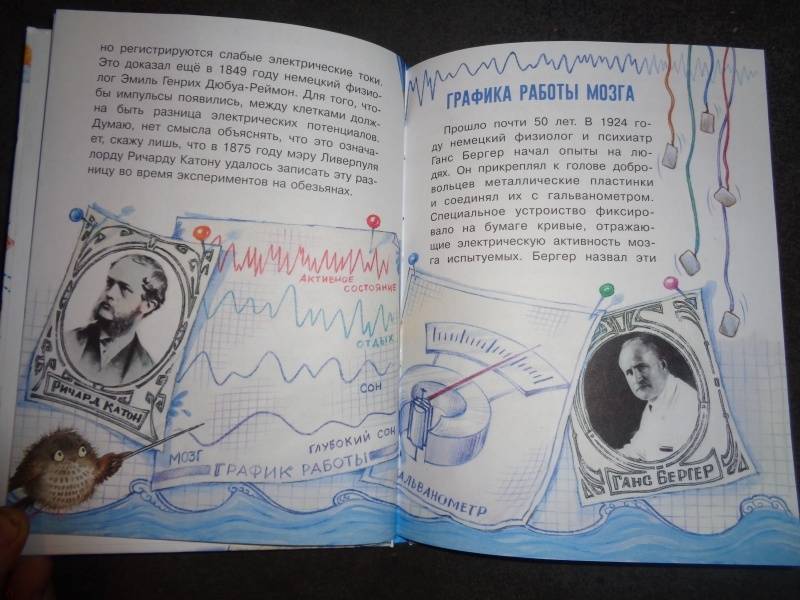 но регистрируются слабые электрические токи.
Это доказал ещё в 1849 году немецкий физио-
лог Эмиль Генрих Дюбуа-Реймон. Для того, что-
бы импульсы появились, между клетками долж-
на быть разница электрических потенциалов.
Думаю, нет смысла объяснять, что это означа-
ет, скажу лишь, что в 1875 году мэру Ливерпуля
лорду Ричарду Катону удалось записать эту раз-
ницу во время экспериментов на обезьянах.
АКТИВНОЕ
СОСТОЯНИЕ
ОТДЫХ
СОН
ГЛУБОКИЙ СОН
МОЗГ
ГРАФИК РАБОТЫ
РИЧАРД КАТОН
ГРАФИКА РАБОТЫ МОЗГА
Прошло почти 50 лет. В 1924 го-
ду немецкий физиолог и психиатр
Ганс Бергер начал опыты на лю-
дях. Он прикреплял к голове добро-
вольцев металлические пластинки
и соединял их с гальванометром.
Специальное устройство фиксиро-
вало на бумаге кривые, отражаю-
щие электрическую активность моз-
га испытуемых. Бергер назвал эти
АЛЬВАНОМЕТР
ГАНС БЕРГЕР